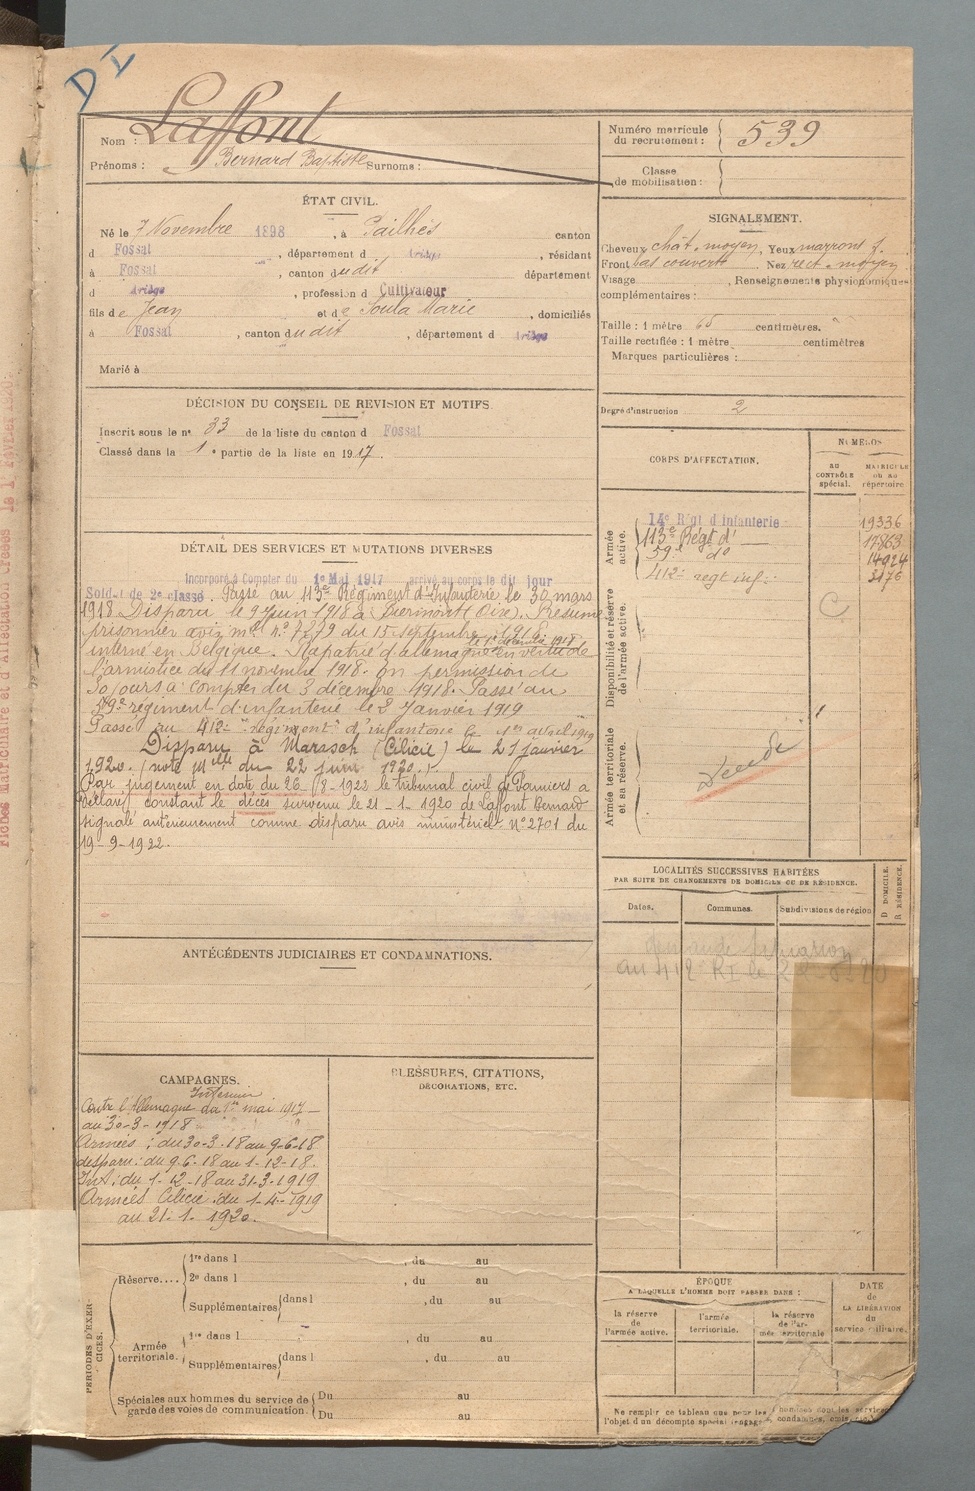 DI
Nom : Laffont
Prénoms : Bernard Baptiste Surnoms :
Numéro matricule du recrutement : 539
Classe de mobilisation :
ÉTAT CIVIL.
Né le 7 Novembre 1898, à Pailhès canton
d Fossat, département d Ariège, résidant
à Fossat, canton dudit département
d Ariège, profession d Cultivateur
fils de Jean et de Soula Marie, domiciliés
à Fossat, canton dudit, département d Ariège
Marié à
SIGNALEMENT.
Cheveux chât. moyen, Yeux marrons f.
Front bas couvert Nez rect. moyen
Visage , Renseignements physionomiques
complémentaires :
Taille : 1 mètre 65 centimètres.
Taille rectifiée : 1 mètre centimètres
Marques particulières :
Degré d'instruction 2
DÉCISION DU CONSEIL DE REVISION ET MOTIFS.
Inscrit sous le n° 33 de la liste du canton d Fossat
Classé dans la 1e partie de la liste en 1917.
CORPS D'AFFECTATION.
NUMÉROS
AU CONTRÔLE spécial.
MATRICULE OU AU répertoire.
Armée active.
14e Régt d'Infanterie 19336
113e Régt d° 17863
59e d° 14924
412e régt inf. 3176
Disponibilité et réserve de l'armée active.
C
Armée territoriale et sa réserve.
Décédé
DÉTAIL DES SERVICES ET MUTATIONS DIVERSES
Incorporé à Compter du 1e Mai 1917 arrivé au corps le dit jour
Soldat de 2e classe. Passé au 113e Régiment d'Infanterie le 30 mars
1918 Disparu le 9 Juin 1918 à (Oise). Présumé
prisonnier avis mel n° 7279 du 15 septembre 1918
interné en Belgique. Rapatrié d'allemagne le 1er décembre 1918 en vertu de
l'armistice du 11 novembre 1918. En permission de
30 jours à compter du 3 décembre 1918. Passé au
59e régiment d'infanterie le 2 Janvier 1919
Passé au 412e régiment d'infanterie le 1er avril 1919
Disparu à Marasch (Cilicie) le 21 janvier
1920. (note Mlle du 22 juin 1920.)
Par jugement en date du 26/8-1922 le tribunal civil de Pamiers a
déclaré constant le décès survenu le 21-1-1920 de Laffont Bernard
signalé antérieurement comme disparu avis ministériel N° 2701 du
19-9-1922.
LOCALITÉS SUCCESSIVES HABITÉES
PAR SUITE DE CHANGEMENTS DE DOMICILE OU DE RÉSIDENCE.
Dates.
Communes.
Subdivisions de région
D DOMICILE.
R RÉSIDENCE.
demande situation
au 412 RI le
ANTÉCÉDENTS JUDICIAIRES ET CONDAMNATIONS.
CAMPAGNES.
Intérieur
Contre l'Allemagne du 1er mai 1917
au 30-3-1918
Armées : du 30-3-18 au 9-6-18
disparu : du 9.6.18 au 1-12-18.
Int : du 1-12-18 au 31-3-1919
Armées Cilicie : du 1-4-1919
au 21-1-1920.
BLESSURES, CITATIONS,
DÉCORATIONS, ETC.
PÉRIODES D'EXERCICES.
Réserve....
1re dans l , du au
2e dans l , du au
Supplémentaires dans l , du au
Armée territoriale.
1re dans l , du au
Supplémentaires dans l , du au
Spéciales aux hommes du service de garde des voies de communication.
Du au
Du au
ÉPOQUE
A LAQUELLE L'HOMME DOIT PASSER DANS :
la réserve de l'armée active.
l'armée territoriale.
la réserve de l'armée territoriale
DATE de LA LIBÉRATION du service militaire.
Ne remplir ce tableau que pour les hommes dont les services
l'objet d'un décompte spécial (engagés, condamnés, omis